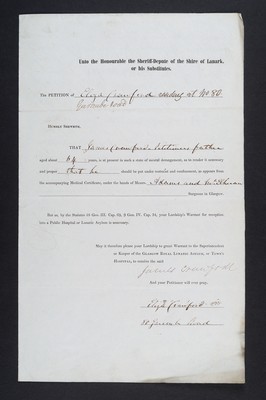 Unto the Honourable the Sheriff-Depute of the Shire of Lanark,
or his Substitutes.
The PETITION of Eliza Crawford residing at No 80
HUMBLY SHEWETH,
THAT James Crawford Petitioners father
aged about 64 years, is at present in such a state of mental derangement, as to render it necessary
and proper that he should be put under restraint and confinement, as appears from
the accompanying Medical Certificate, under the hands of Messrs Adams and
Surgeons in Glasgow.
But as, by the Statutes 55 Geo. III. Cap. 69, 9 Geo. IV. Cap. 34, your Lordship's Warrant for reception
into a Public Hospital or Lunatic Asylum is necessary,
May it therefore please your Lordship to grant Warrant to the Superintendent
or Keeper of the GLASGOW ROYAL LUNATIC ASYLUM, or TOWN'S
HOSPITAL, to receive the said
James Crawford
And your Petitioner will ever pray.
Eliza Crawford
80